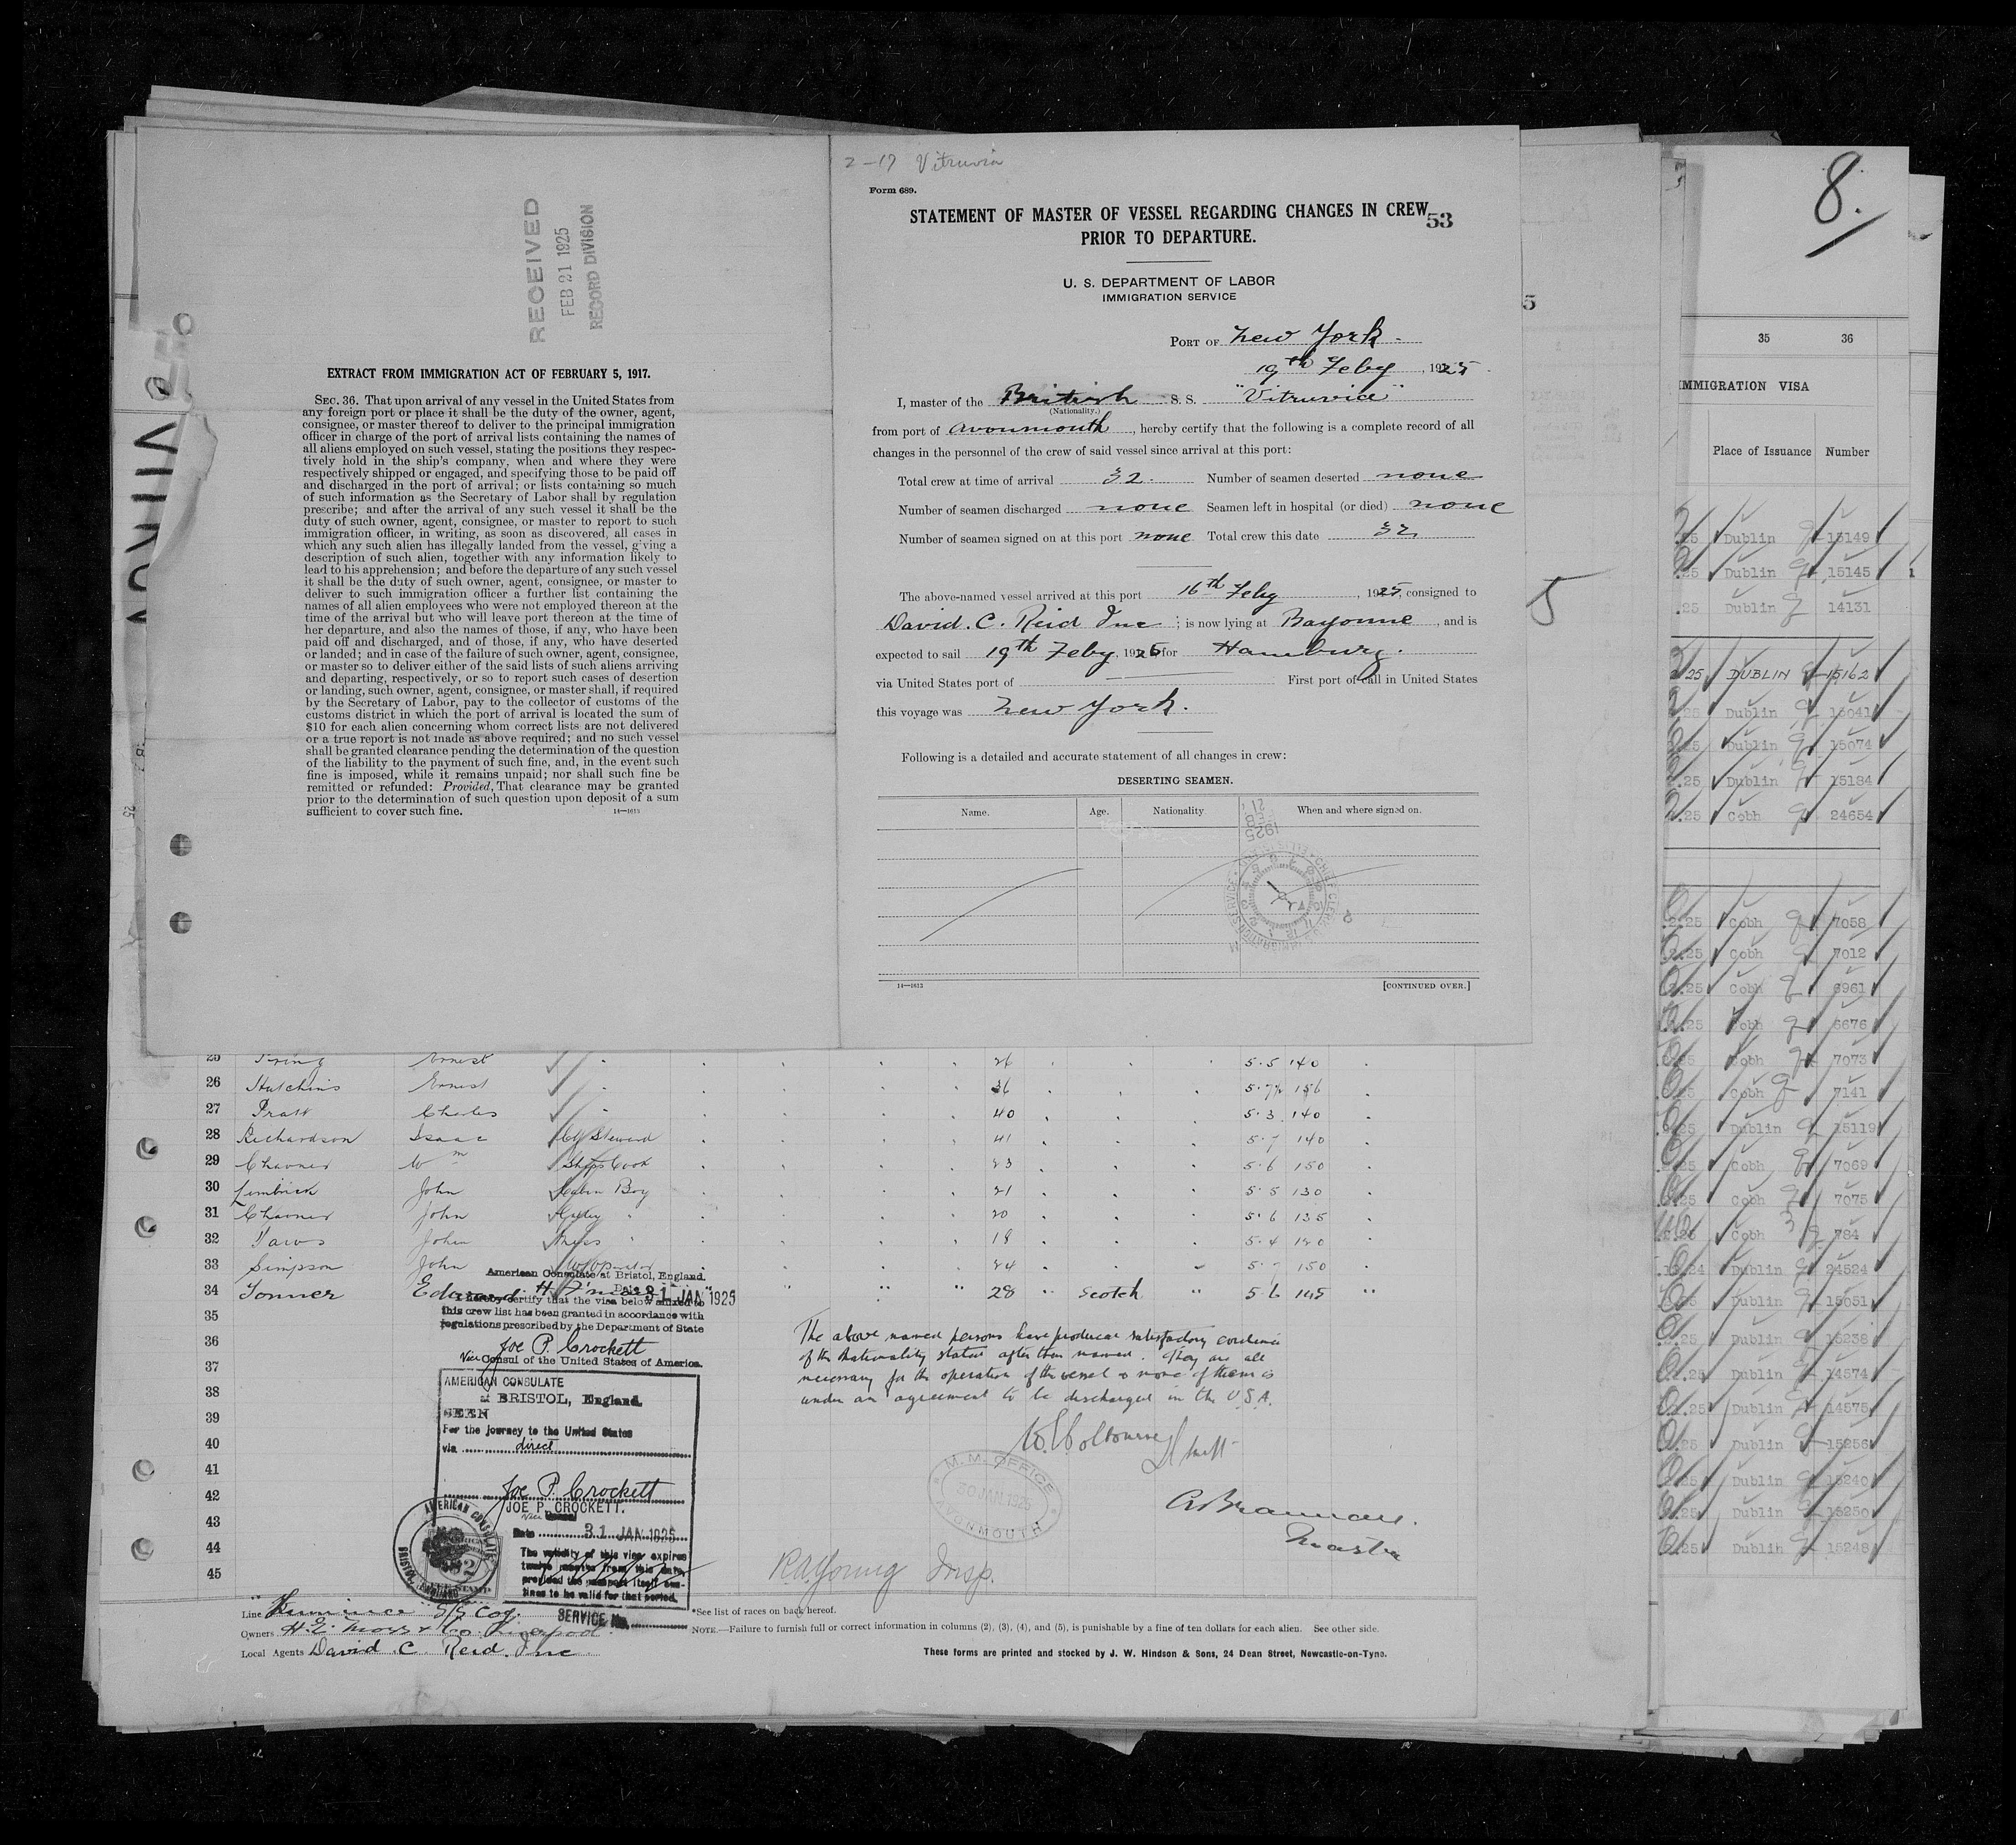 2-17 Vitruvia
Form 689.
STATEMENT OF MASTER OF VESSEL REGARDING CHANGES IN CREW
53
PRIOR TO DEPARTURE.
U. S. DEPARTMENT OF LABOR
IMMIGRATION SERVICE
PORT OF New York.
19th Feby, 1925.
I, master of the British S. S. "Vitruvia"
(Nationality.)
from port of Avonmouth, hereby certify that the following is a complete record of all
changes in the personnel of the crew of said vessel since arrival at this port:
Total crew at time of arrival 32. Number of seamen deserted none
Number of seamen discharged none Seamen left in hospital (or died) none
Number of seamen signed on at this port none Total crew this date 32
The above-named vessel arrived at this port 16th Feby, 1925, consigned to
David. C. Reid Inc; is now lying at Bayonne, and is
expected to sail 19th Feby, 1925 for Hamburg.
via United States port of First port of call in United States
this voyage was New York.
Following is a detailed and accurate statement of all changes in crew:
DESERTING SEAMEN.
Name. Age. Nationality When and where signed on.
14—1613 [CONTINUED OVER.]
RECEIVED
FEB 21 1925
RECORD DIVISION
EXTRACT FROM IMMIGRATION ACT OF FEBRUARY 5, 1917.
SEC. 36. That upon arrival of any vessel in the United States from
any foreign port or place it shall be the duty of the owner, agent,
consignee, or master thereof to deliver to the principal immigration
officer in charge of the port of arrival lists containing the names of
all aliens employed on such vessel, stating the positions they respec-
tively hold in the ship's company, when and where they were
respectively shipped or engaged, and specifying those to be paid off
and discharged in the port of arrival; or lists containing so much
of such information as the Secretary of Labor shall by regulation
prescribe; and after the arrival of any such vessel it shall be the
duty of such owner, agent, consignee, or master to report to such
immigration officer, in writing, as soon as discovered, all cases in
which any such alien has illegally landed from the vessel, giving a
description of such alien, together with any information likely to
lead to his apprehension; and before the departure of any such vessel
it shall be the duty of such owner, agent, consignee, or master to
deliver to such immigration officer a further list containing the
names of all alien employees who were not employed thereon at the
time of the arrival but who will leave port thereon at the time of
her departure, and also the names of those, if any, who have been
paid off and discharged, and of those, if any, who have deserted
or landed; and in case of the failure of such owner, agent, consignee,
or master so to deliver either of the said lists of such aliens arriving
and departing, respectively, or so to report such cases of desertion
or landing, such owner, agent, consignee, or master shall, if required
by the Secretary of Labor, pay to the collector of customs of the
customs district in which the port of arrival is located the sum of
$10 for each alien concerning whom correct lists are not delivered
or a true report is not made as above required; and no such vessel
shall be granted clearance pending the determination of the question
of the liability to the payment of such fine, and, in the event such
fine is imposed, while it remains unpaid; nor shall such fine be
remitted or refunded: Provided, That clearance may be granted
prior to the determination of such question upon deposit of a sum
sufficient to cover such fine. 14—1613
25 Ernest 26 5.5 140
26 Hutchins Ernest 36 5.7½ 156
27 Pratt Charles 40 5.3 140
28 Richardson Isaac Ch Steward 41 5.7 140
29 Wm Ships Cook 23 5.6 150
30 Limbrick John Cabin Boy 21 5.5 130
31 John Galley 20 5.6 135
32 John Mess 18 5.4 120
33 Simpson John W/Operator 24 5.7 150
34 Tonner Edward 28 Scotch 5 6 145
35
36
37
38
39
40
41
42
43
44
45
American Consulate at Bristol, England.
Date 31 JAN 1925
I hereby certify that the visa below affixed to
this crew list has been granted in accordance with
regulations prescribed by the Department of State
Joe P. Crockett
Vice Consul of the United States of America.
AMERICAN CONSULATE
at BRISTOL, England.
SEEN
For the journey to the United States
via direct
Joe P. Crockett
JOE P. CROCKETT.
Vice Consul
Date 31 JAN 1925
The validity of this visa expires
twelve months from this date,
provided the passport itself con-
tinues to be valid for that period.
SERVICE No.
AMERICAN CONSULATE
BRISTOL, ENGLAND
The above named persons have produced satisfactory evidence
of the Nationality stated after their names. They are all
necessary for the operation of the vessel & none of them is
under an agreement to be discharged in the U.S.A.
M. M. OFFICE
30 JAN 1925
AVONMOUTH
Master
R.A. Young Insp.
Line S/S Coy.
Owners H.E. Moss & Co. Liverpool.
Local Agents David. C. Reid. Inc
*See list of races on back hereof.
NOTE.—Failure to furnish full or correct information in columns (2), (3), (4), and (5), is punishable by a fine of ten dollars for each alien. See other side.
These forms are printed and stocked by J. W. Hindson & Sons, 24 Dean Street, Newcastle-on-Tyne.
5
5
8.
35 36
IMMIGRATION VISA
Place of Issuance Number
Dublin 15149
Dublin 15145
Dublin 14131
DUBLIN 15162
Dublin 15041
Dublin 15074
Dublin 15184
Cobh 24654
Cobh 7058
Cobh 7012
Cobh 6961
Cobh 6676
Cobh 7073
Cobh 7141
Dublin 15119
Cobh 7069
Cobh 7075
Cobh 784
Dublin 24524
Dublin 15051
Dublin 15238
Dublin 14574
Dublin 14575
Dublin 15256
Dublin 15240
Dublin 15250
Dublin 15248